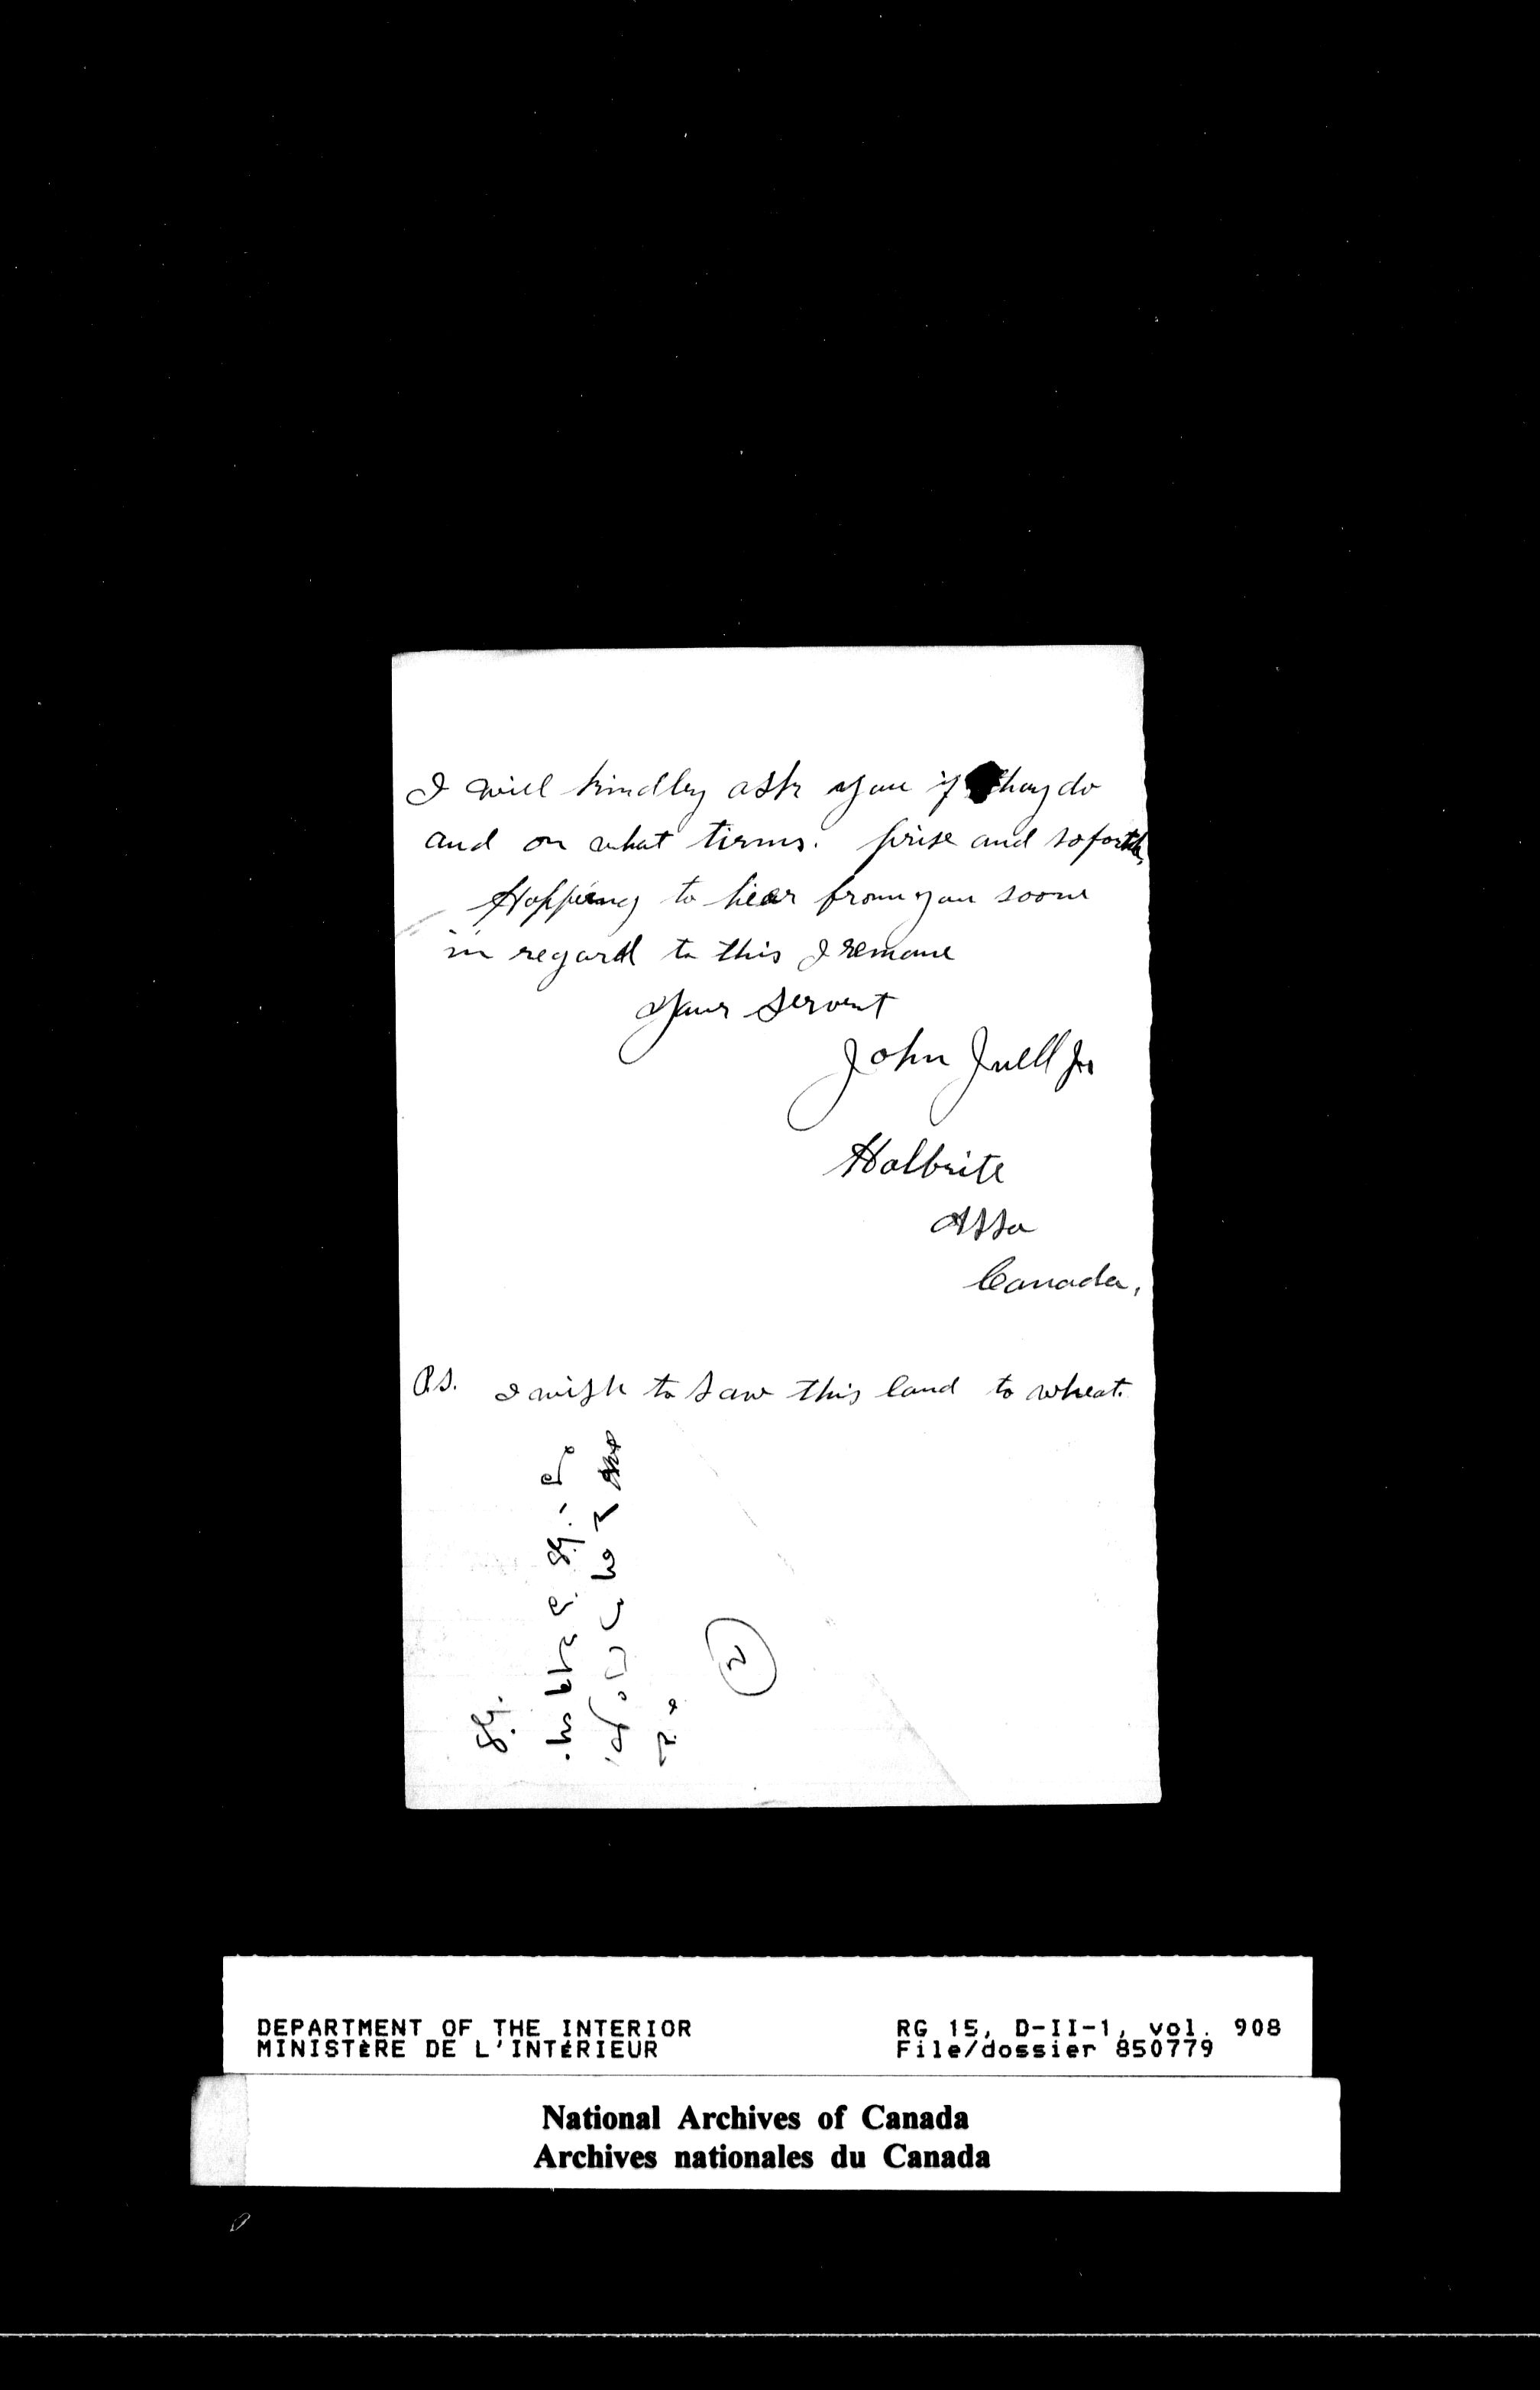 I will kindly ask you if thay do
and on what tirms. prise and soforth,
Hopping to hear from you soone
in regard to this I remane
Your Servent
John Juell Jr
Halbrite
Assa
Canada,
P.S. I wish to saw this land to wheat.
2
DEPARTMENT OF THE INTERIOR
MINISTÈRE DE L'INTÉRIEUR
RG 15, D-II-1, vol. 908
File/dossier 850779
National Archives of Canada
Archives nationales du Canada